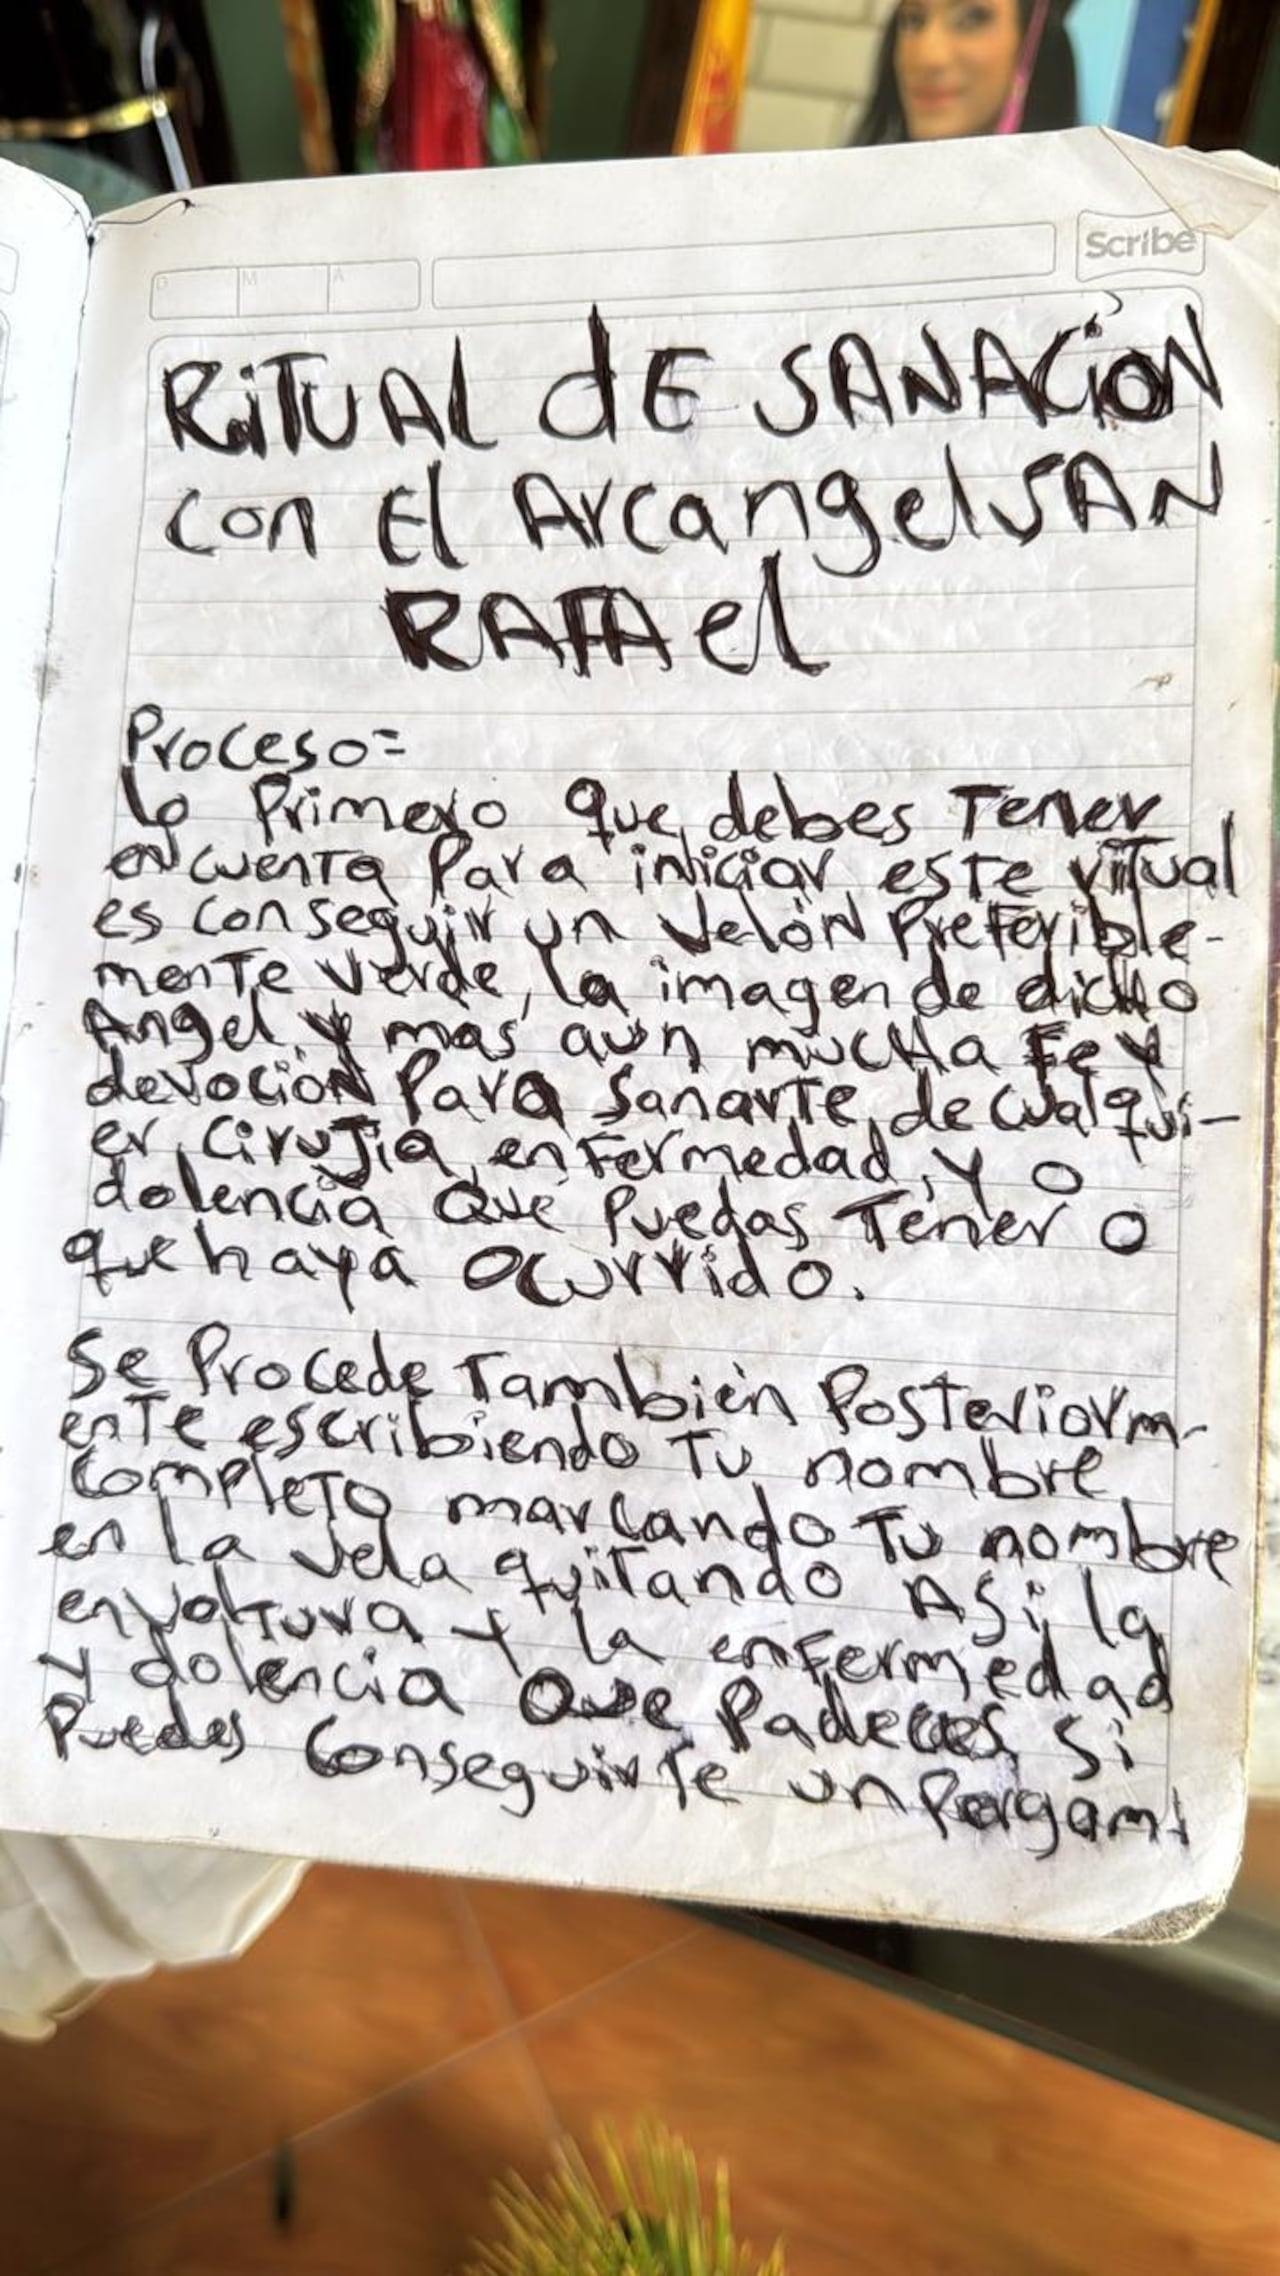 Scribe
D M A
RiTUAL dE SANACiÓN
con El ArcangelSAN
RAFAel
Proceso=
Lo Primero que debes Tener
en cuenTa Para iniciar este riTual
es conseguir un Velón Preferible-
menTe verde, la imagen de dicho
Angel y mas aun mucHa Fe y
devoción Para SanarTe, de cualqui-
er, cirujia, enfermedad, y o
dolencia Que Puedas Tener o
que haya ocurrido.
Se Procede También Posteriorm-
enTe escribiendo Tu nombre
compleTo marcando Tu nombre
en la vela quiTando ASi la
envolTura y la enfermedad
y dolencia Que Padeces, Si
Puedes ConseguirTe un Pergami